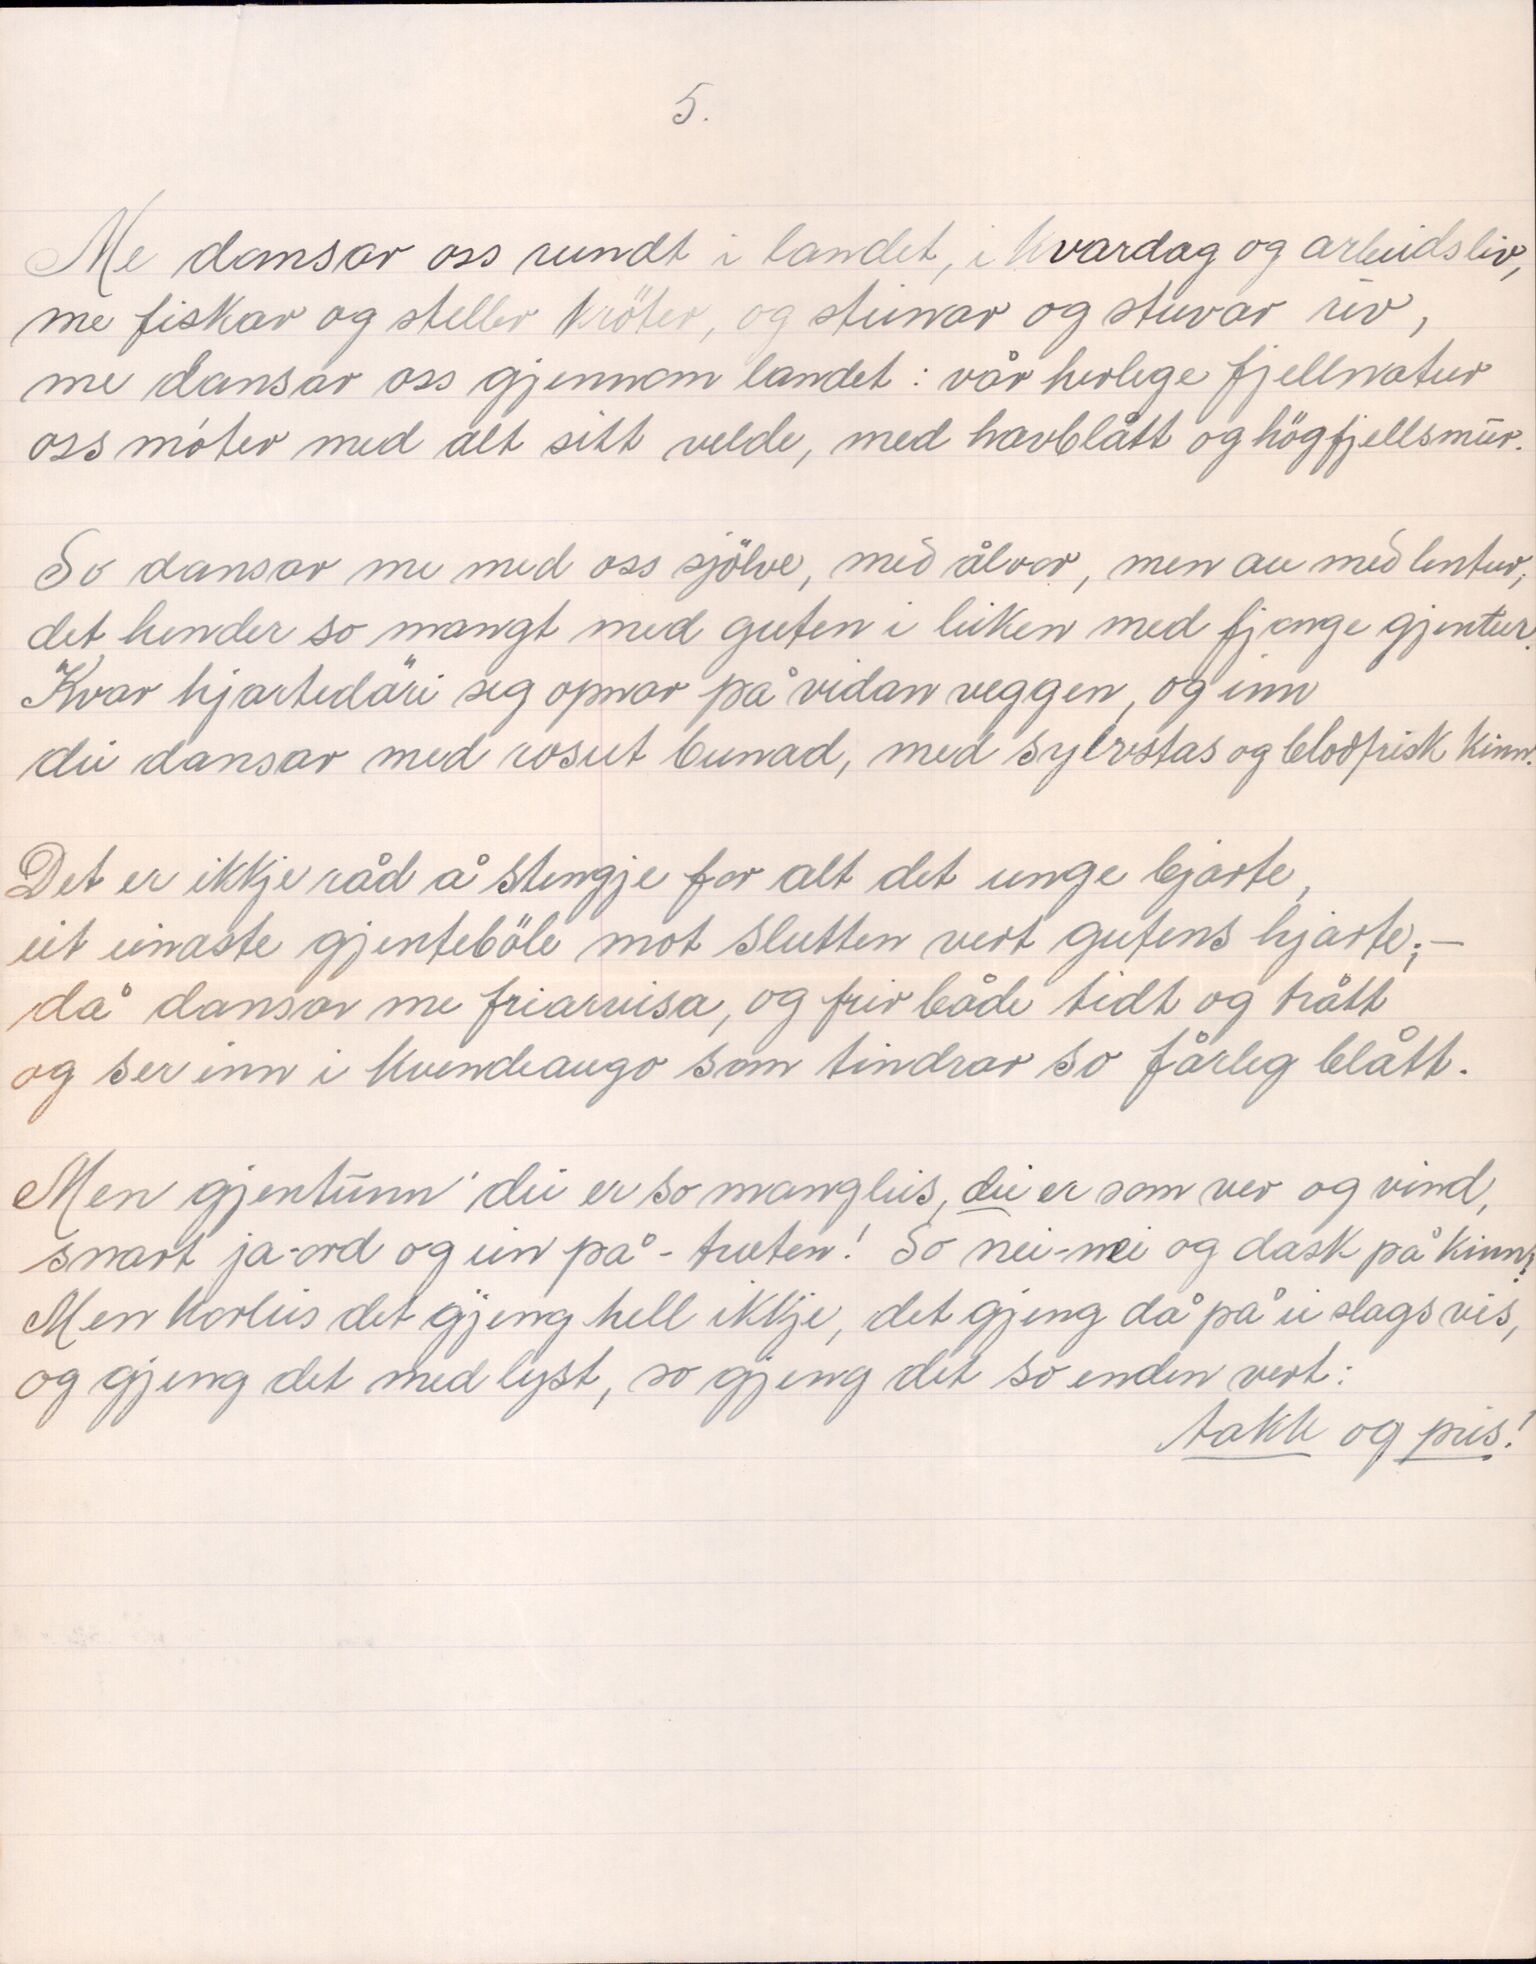 5.
Me dansar oss rundt i landet, i kvardag og arbeidsliv,
me fiskar og steller kröter, og steinar og stuvar riv,
me dansar oss gjennom landet: vår herlege fjellnatur
oss möter med alt sitt velde, med havblått og högfjellsmur.
So dansar me med oss sjölve, med ålvor, men au med lentur;
det hender so mangt med guten i leiken med fjonge gjentur.
Kvar hjartedöri seg opnar på vidan veggen, og inn
du dansar med rosut bunad, med sylvstas og blodfrisk kinn.
Det er ikkje råd å stengje for alt det unge bjarte,
eit einaste gjenteböle mot slutten vert gutens hjarte; —
då dansar me friarvisa, og frir både tidt og trått
og ser inn i kvendeaugo som tindrar so fårleg blått.
Men gjentunn' du er so mangleis, du er som ver og vind,
snart ja-ord og ein på-træten! So nei-nei og dask på kinn;
Men korleis det gjeng hell ikkje, det gjeng då på ei slags vis,
og gjeng det med lyst, so gjeng det so enden vert:
takk og pris!